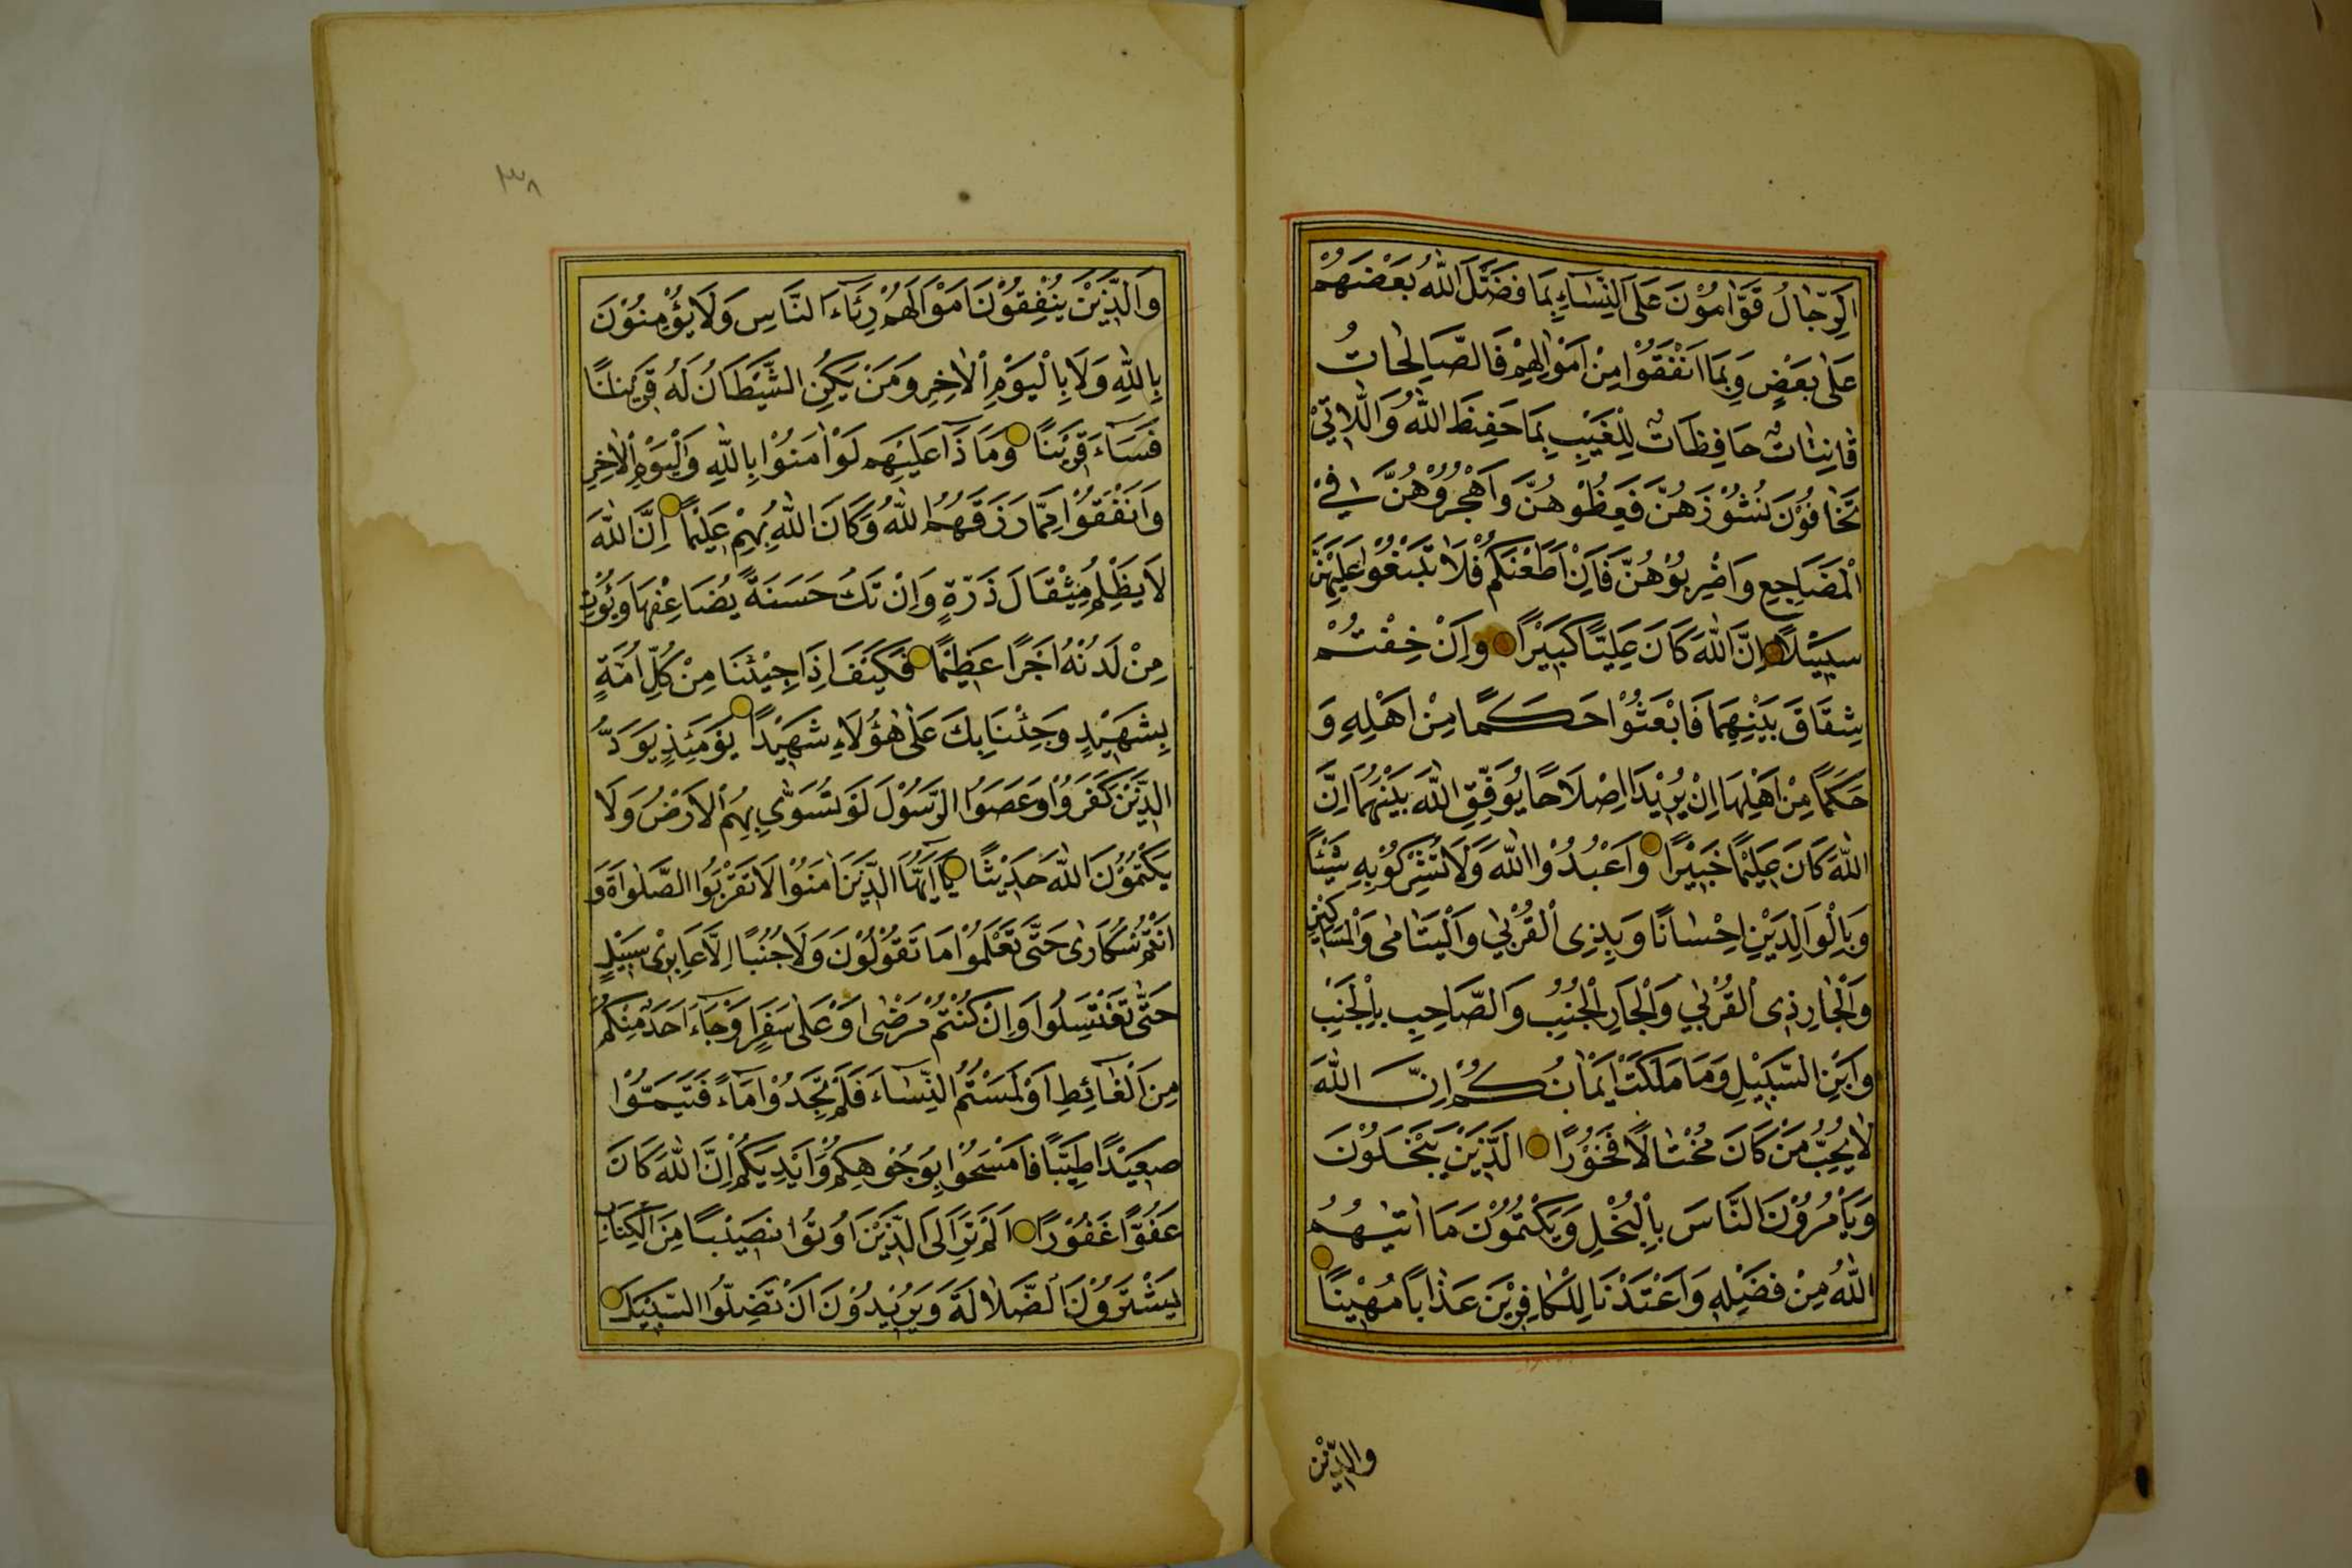 اَلرِّجَالُ قَوَّامُوْنَ عَلَى النِّسَاءِ بِمَا فَضَّلَ اللهُ بَعْضَهُمْ
عَلٰى بَعْضٍ وَبِمَا اَنْفَقُوْا مِنْ اَمْوَالِهِمْ فَالصَّالِحَاتُ
قَانِتَاتٌ حَافِظَاتٌ لِلْغَيْبِ بِمَا حَفِظَ اللهُ وَاللَّاتِيْ
تَخَافُوْنَ نُشُوْزَهُنَّ فَعِظُوْهُنَّ وَاهْجُرُوْهُنَّ فِيْ
الْمَضَاجِعِ وَاضْرِبُوْهُنَّ فَاِنْ اَطَعْنَكُمْ فَلَا تَبْتَغُوْا عَلَيْهِنَّ
سَبِيْلًا اِنَّ اللهَ كَانَ عَلِيًّا كَبِيْرًا وَاِنْ خِفْتُمْ
شِقَاقَ بَيْنِهِمَا فَابْعَثُوْا حَكَمًا مِنْ اَهْلِهِ وَ
حَكَمًا مِنْ اَهْلِهَا اِنْ يُرِيْدَا اِصْلَاحًا يُوَفِّقِ اللهُ بَيْنَهُمَا اِنَّ
اللهَ كَانَ عَلِيْمًا خَبِيْرًا وَاعْبُدُوْا اللهَ وَلَا تُشْرِكُوْ بِهِ شَيْئًا
وَبِالْوَالِدَيْنِ اِحْسَانًا وَبِذِى الْقُرْبٰى وَالْيَتَامٰى وَالْمَسَاكِيْنِ
وَالْجَارِ ذِى الْقُرْبٰى وَالْجَارِ الْجُنُبِ وَالصَّاحِبِ بِالْجَنْبِ
وَابْنِ السَّبِيْلِ وَمَا مَلَكَتْ اَيْمَانُكُمْ اِنَّ اللهَ
لَا يُحِبُّ مَنْ كَانَ مُخْتَالًا فَخُوْرًا اَلَّذِيْنَ يَبْخَلُوْنَ
وَيَأْمُرُوْنَ النَّاسَ بِالْبُخْلِ وَيَكْتُمُوْنَ مَا اٰتٰيهُمُ
اللهُ مِنْ فَضْلِهِ وَاَعْتَدْنَا لِلْكَافِرِيْنَ عَذَابًا مُهِيْنًا
والذين
٣٨
وَالَّذِيْنَ يُنْفِقُوْنَ اَمْوَالَهُمْ رِئَاءَ النَّاسِ وَلَا يُؤْمِنُوْنَ
بِاللهِ وَلَا بِالْيَوْمِ الْاٰخِرِ وَمَنْ يَكُنِ الشَّيْطَانُ لَهُ قَرِيْنًا
فَسَاءَ قَرِيْنًا وَمَا ذَا عَلَيْهِمْ لَوْ اٰمَنُوْا بِاللهِ وَالْيَوْمِ الْاٰخِرِ
وَاَنْفَقُوْا مِمَّا رَزَقَهُمُ اللهُ وَكَانَ اللهُ بِهِمْ عَلِيْمًا اِنَّ اللهَ
لَا يَظْلِمُ مِثْقَالَ ذَرَّةٍ وَاِنْ تَكُ حَسَنَةً يُضَاعِفْهَا وَيُؤْتِ
مِنْ لَدُنْهُ اَجْرًا عَظِيْمًا فَكَيْفَ اِذَا جِيْئْنَا مِنْ كُلِّ اُمَّةٍ
بِشَهِيْدٍ وَجِئْنَا بِكَ عَلٰى هٰؤُلَاءِ شَهِيْدًا يَوْمَئِذٍ يَوَدُّ
الَّذِيْنَ كَفَرُوْا وَعَصَوُا الرَّسُوْلَ لَوْ تُسَوّٰى بِهِمُ الْاَرْضُ وَلَا
يَكْتُمُوْنَ اللهَ حَدِيْثًا يَااَيُّهَا الَّذِيْنَ اٰمَنُوْا لَا تَقْرَبُوا الصَّلٰواةَ وَ
اَنْتُمْ سُكَارٰى حَتّٰى تَعْلَمُوْا مَا تَقُوْلُوْنَ وَلَا جُنُبًا اِلَّا عَابِرِىْ سَبِيْلٍ
حَتّٰى تَغْتَسِلُوا وَاِنْ كُنْتُمْ مَرْضٰى اَوْ عَلٰى سَفَرٍ اَوْ جَاءَ اَحَدٌ مِنْكُمْ
مِنَ الْغَائِطِ اَوْ لٰمَسْتُمُ النِّسَاءَ فَلَمْ تَجِدُوْا مَاءً فَتَيَمَّمُوْا
صَعِيْدًا طَيِّبًا فَامْسَحُوْا بِوُجُوْهِكُمْ وَاَيْدِيَكُمْ اِنَّ اللهَ كَانَ
عَفُوًّا غَفُوْرًا اَلَمْ تَرَ اِلَى الَّذِيْنَ اُوْتُوْا نَصِيْبًا مِنَ الْكِتَابِ
يَشْتَرُوْنَ الضَّلَالَةَ وَيُرِيْدُوْنَ اَنْ تَضِلُّوا السَّبِيْلَ